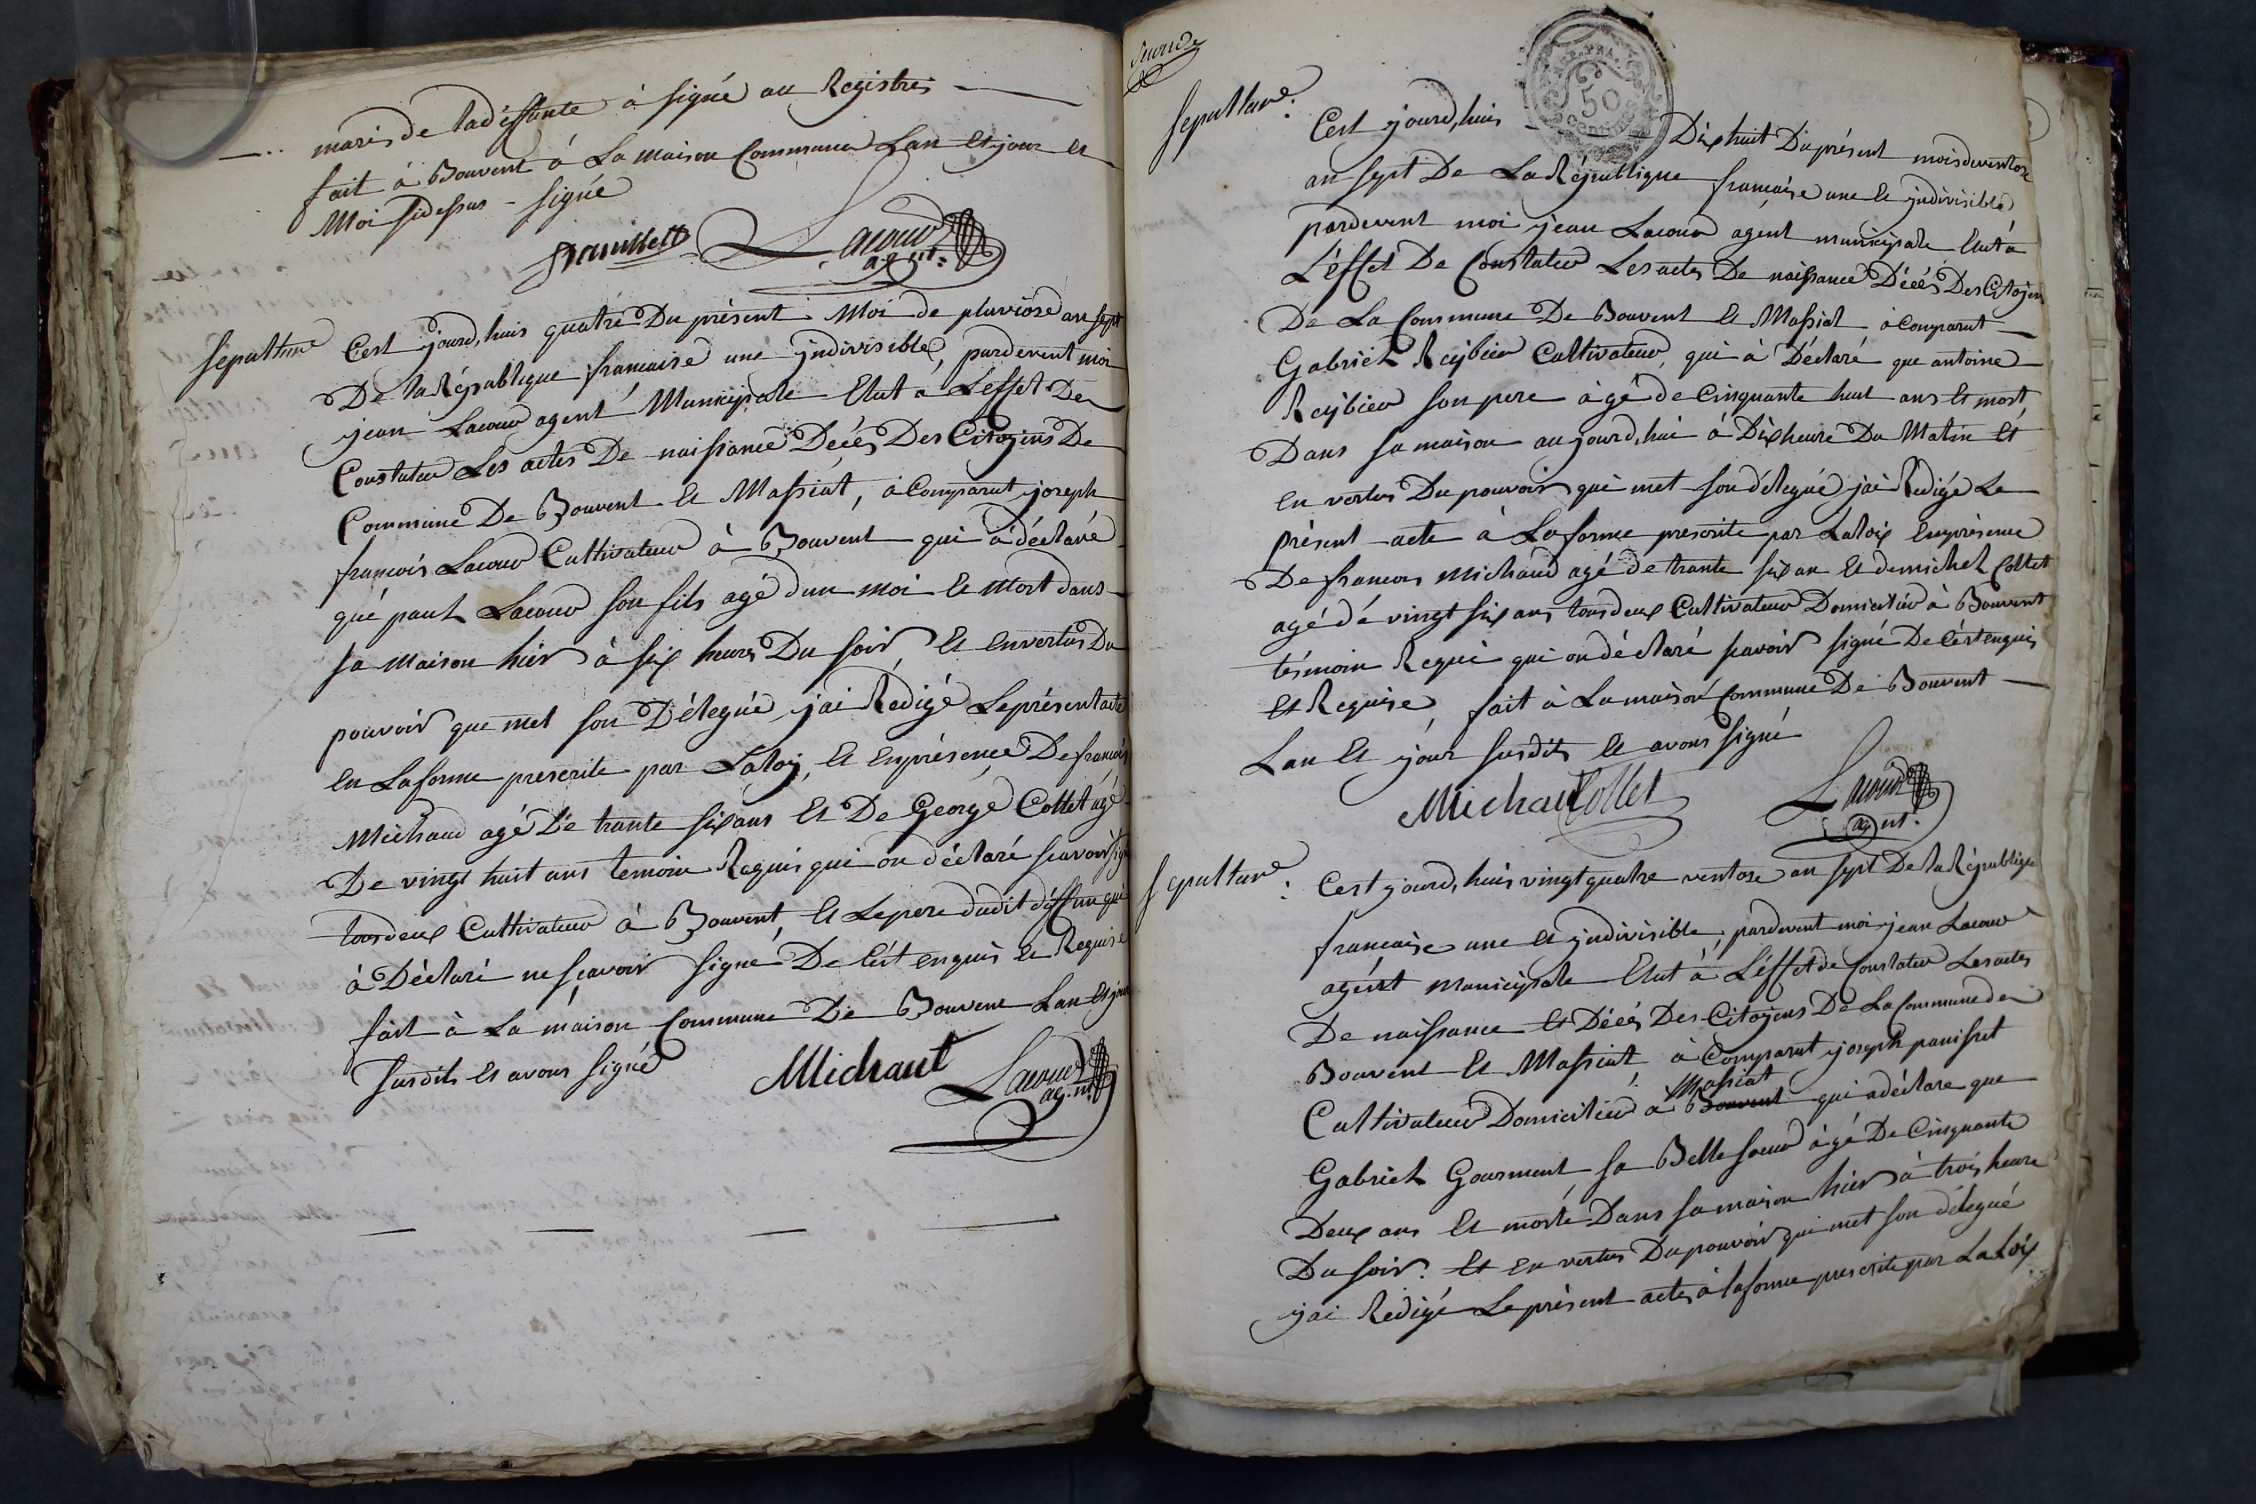 maris de ladéffunte à signé au Registres
fait à Bouvent à La maison Commune Lan Et jour Et
Moi sidessus - signé
Lacour
agnt:
sepultture
Cest jourd,huis quatre Du présent Moi de pluviose an sept
De la République francaise une jndivisible, pardevent moi
jean Lacour agent Municipale Elut á L'effet De
Constater Les actes De naissance Décés Des Citojens De
Commune De Bouvent Et Massiat, à Comparut joseph
francois Lacour Cultivateur à Bouvent qui à déclaré
qué paul Lacour son fils agé dun moi Et Mort dans
sa maison hier à six heures Du soir Et Envertus Du
pouvoir que met son Délegué, jai Rédigé Leprésent acte
En Laforme prescrite par Laloy, Et Enprésence De francois
Michaud agé De trante six ans Et De George Collet agé
De vingt huit ans temoin Requis qui on déclaré scavoir sign
tousdeux Cultivateur à Bouvent, Et Lepere dudit déffun qui
à Déclaré ne scavoir signé De Cést enquis Et Requise
fait à La máison Commune De Bouvent Lan Et jour
susdits Et avons signé
Michaut
Lacour
ag.nt
sepulture:
REP. FRA.
50
Cest jourd,huis Dix huit Du présent mois de ventose
an sept De La République francaise une Et jndivisible
pardevent moi jean Lacour agent municipale Elut a
L'effet De Constater Les actes De naissance Décés Des Citojen
De La Commune De Bouvent Et Massiat à Comparut
Gabriel Reijbier Cultivateur, qui à Déclaré que antoine
Reijbier son pere à gé de Cinquante huit ans Et mort
Dans sa maison aujourd,hui à Dix heure Du Matin Et
En vertus Du pouvoir qui met son délegué jai Redigé Le
présent acte à Laforme prescrite par Laloix Enprésence
De francois Michaud agé de trante six an Et demichel Collet
agé dé vingt six ans tousdeux Cultivateur Domicilier à Bouvent
tésmoin Requi qui on déclaré scavoir signé De Cést enquis
Et Requise, fait à La maison Commune De Bouvent
Lan Et jour susdits Et avons signé
Michau Collet
Lacour
agnt.
sepulture:
Cest jourd,huis vingt quatre ventose an sept De la République
francaise une Et jndivisible, pardevent moi jean Lacour
agént municipale Elut à L'éffet de Constater Les actes
De naissance Et Décés Des Citojens De La Commune de
Bouvent Et Massiat à Comparut joseph panisset
Massiat
Cultivateur Domicilier à Bouvent qui adéclare que
Gabriel Gourmant sa Belle soeur à gé De Cinquante
Deux ans Et morte Dans sa maison hier à trois heure
Du soir. Et En vertus Du pouvoir qui met son délegué
jai Redigé Le présent acte, à laforme prescrite par La Loix